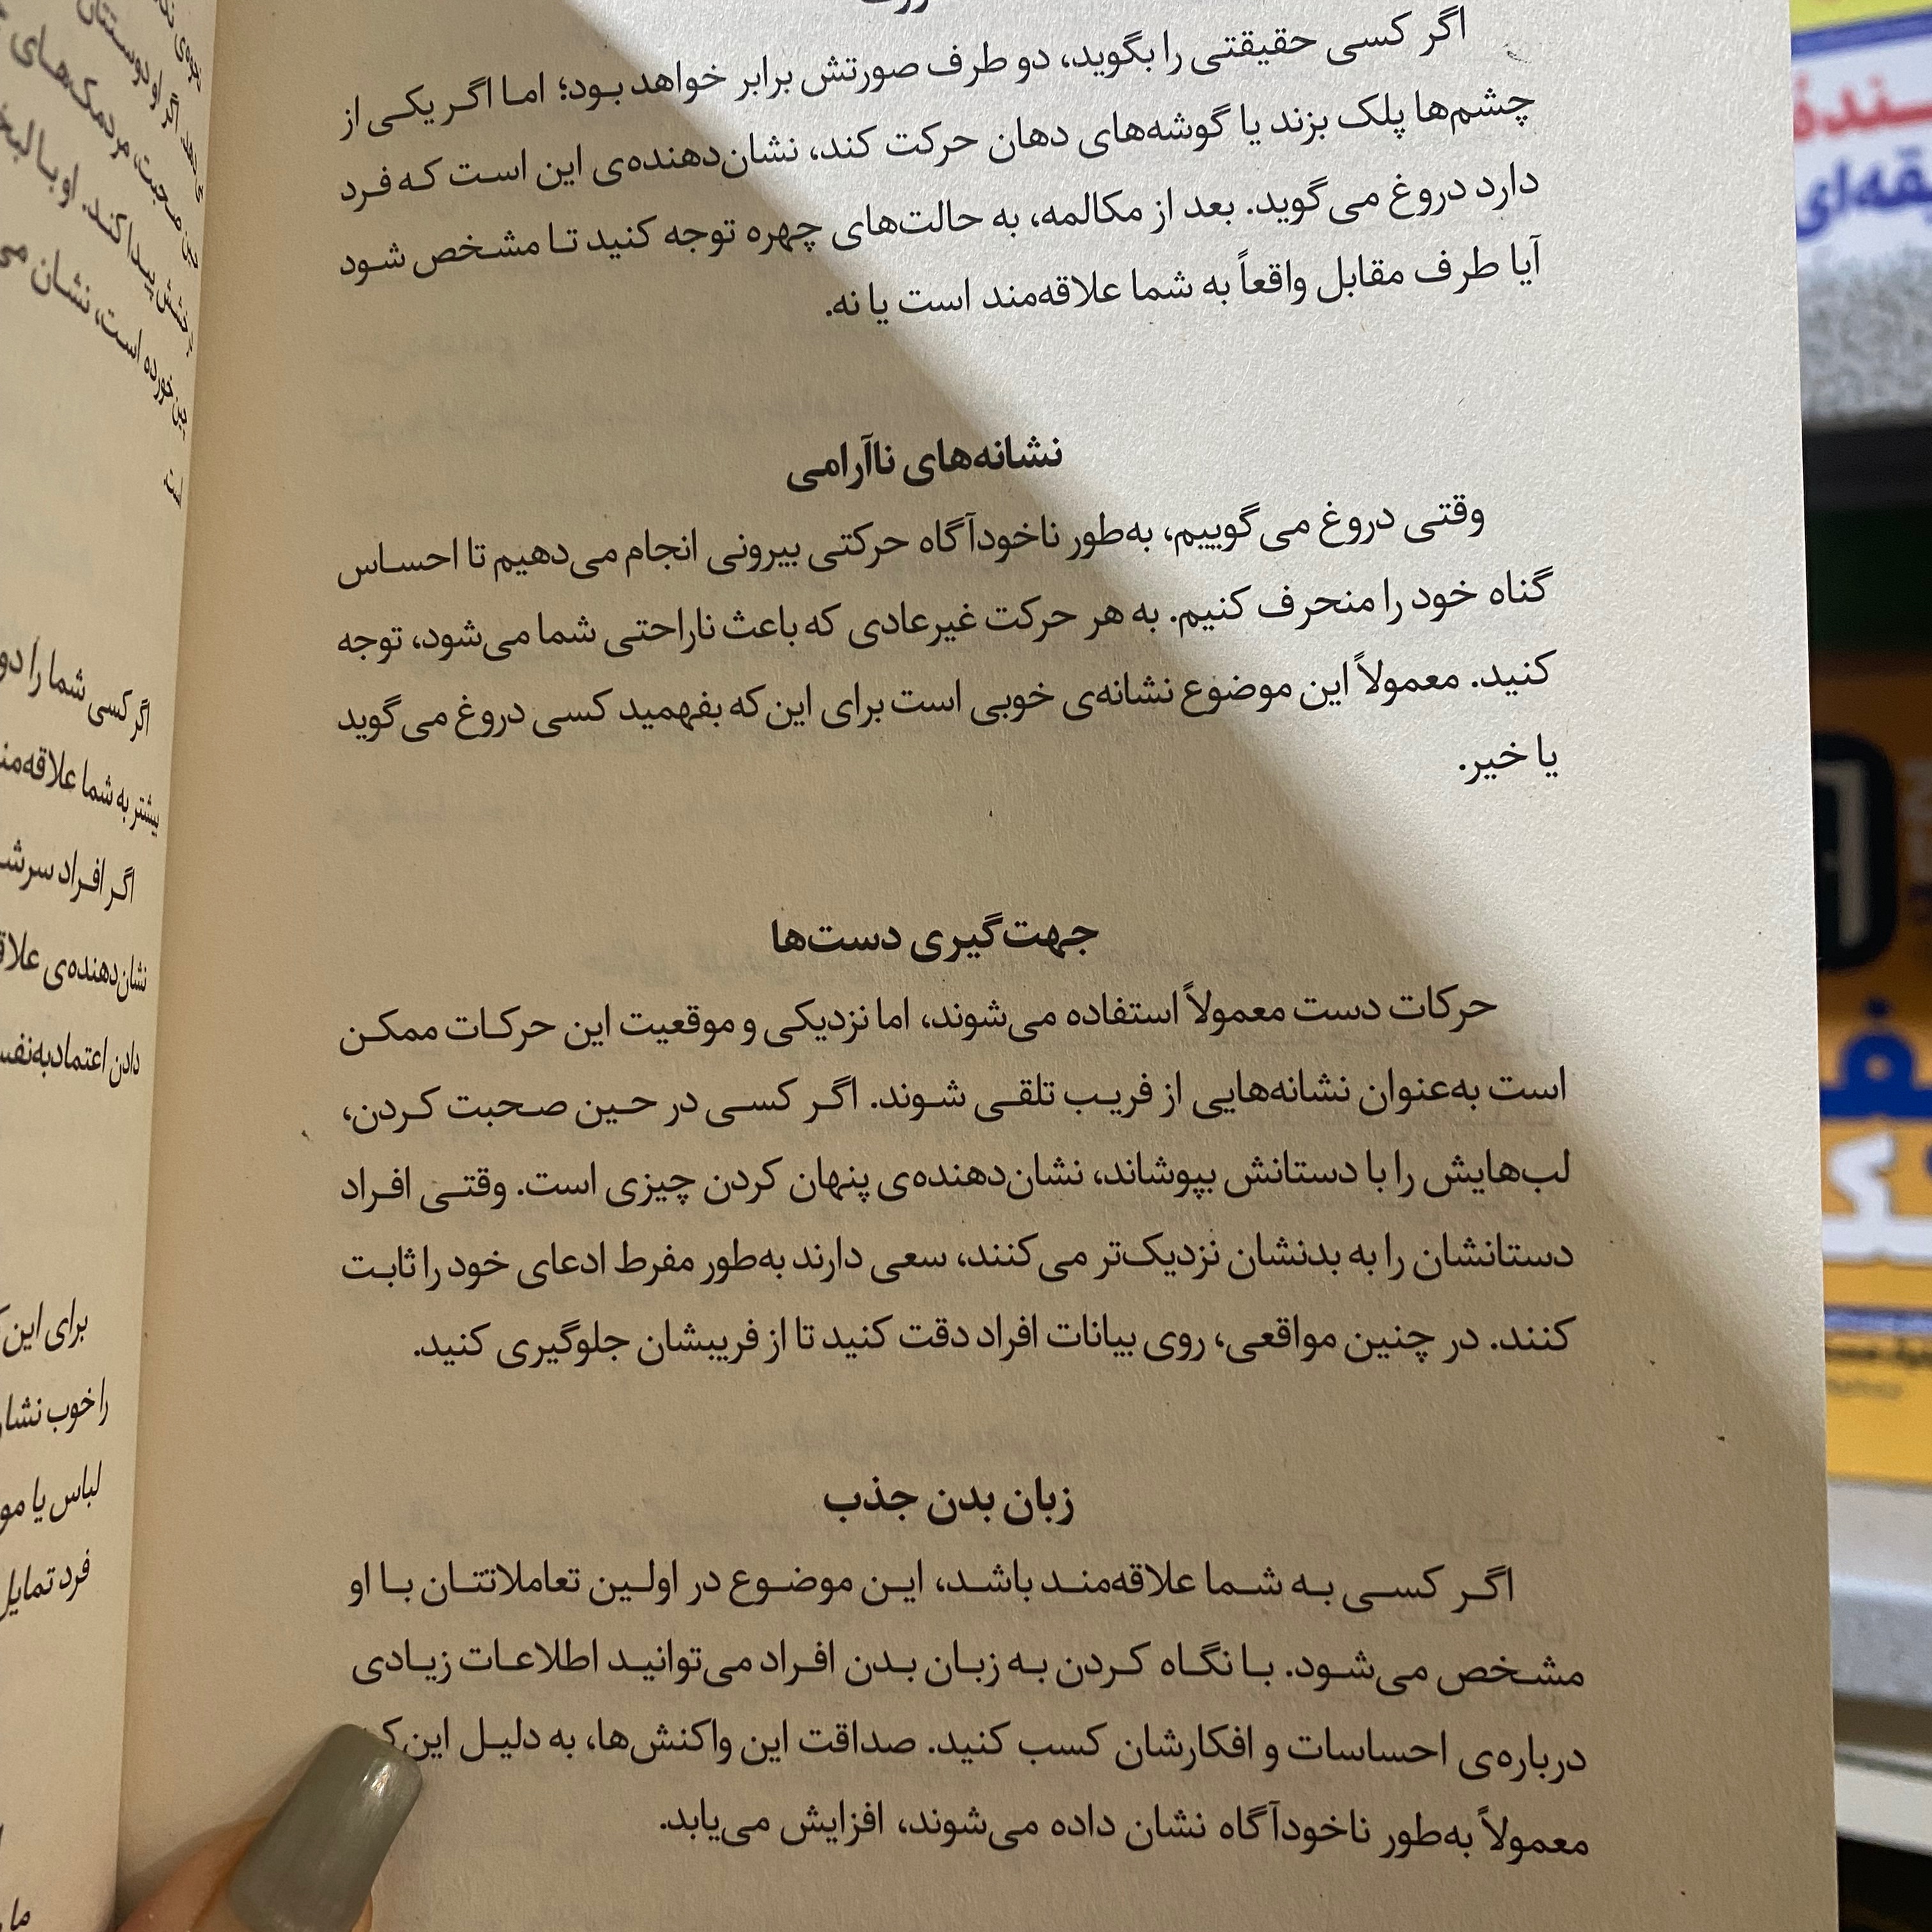 اگر کسی حقیقتی را بگوید، دو طرف صورتش برابر خواهد بود؛ اما اگر یکی از
چشم‌ها پلک بزند یا گوشه‌های دهان حرکت کند، نشان‌دهنده‌ی این است که فرد
دارد دروغ می‌گوید. بعد از مکالمه، به حالت‌های چهره توجه کنید تا مشخص شود
آیا طرف مقابل واقعاً به شما علاقه‌مند است یا نه.
نشانه‌های ناآرامی
وقتی دروغ می‌گوییم، به‌طور ناخودآگاه حرکتی بیرونی انجام می‌دهیم تا احساس
گناه خود را منحرف کنیم. به هر حرکت غیرعادی که باعث ناراحتی شما می‌شود، توجه
کنید. معمولاً این موضوع نشانه‌ی خوبی است برای این‌که بفهمید کسی دروغ می‌گوید
یا خیر.
جهت‌گیری دست‌ها
حرکات دست معمولاً استفاده می‌شوند، اما نزدیکی و موقعیت این حرکات ممکن
است به‌عنوان نشانه‌هایی از فریب تلقی شوند. اگر کسی در حین صحبت کردن،
لب‌هایش را با دستانش بپوشاند، نشان‌دهنده‌ی پنهان کردن چیزی است. وقتی افراد
دستانشان را به بدنشان نزدیک‌تر می‌کنند، سعی دارند به‌طور مفرط ادعای خود را ثابت
کنند. در چنین مواقعی، روی بیانات افراد دقت کنید تا از فریبشان جلوگیری کنید.
زبان بدن جذب
اگر کسی به شما علاقه‌مند باشد، این موضوع در اولین تعاملاتتان با او
مشخص می‌شود. با نگاه کردن به زبان بدن افراد می‌توانید اطلاعات زیادی
درباره‌ی احساسات و افکارشان کسب کنید. صداقت این واکنش‌ها، به دلیل این‌که
معمولاً به‌طور ناخودآگاه نشان داده می‌شوند، افزایش می‌یابد.
اگر کسی شما را
بیشتر به شما
اگر افراد
نشان‌دهنده‌ی
دادن
برای این
را خوب
لباس یا
فرد تمایل